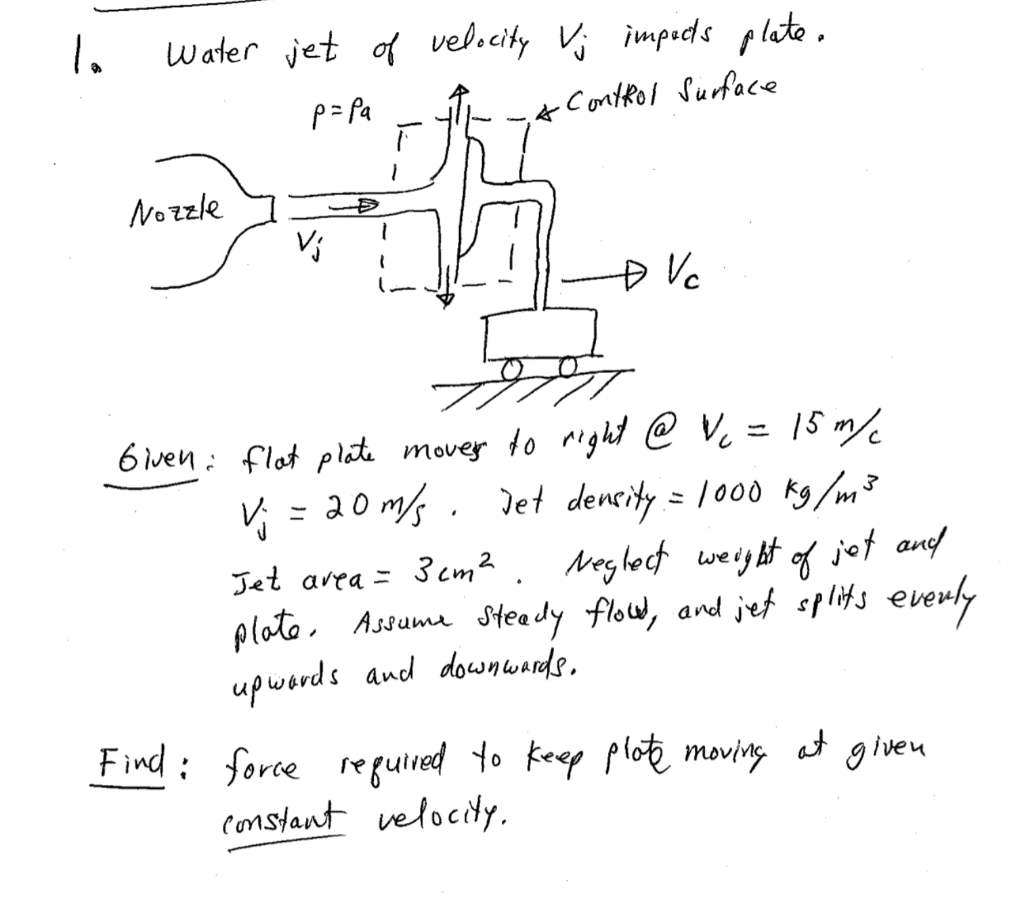 1. Water jet of velocity Vj impacts plate.
p=Pa
Control Surface
Nozzle
Vj
Vc
Given: flat plate moves to right @ Vc = 15 m/c
Vj = 20 m/s. Jet density = 1000 kg/m³
Jet area = 3cm². Neglect weight of jet and
plate. Assume steady flow, and jet splits evenly
upwards and downwards.
Find: force required to keep plate moving at given
constant velocity.